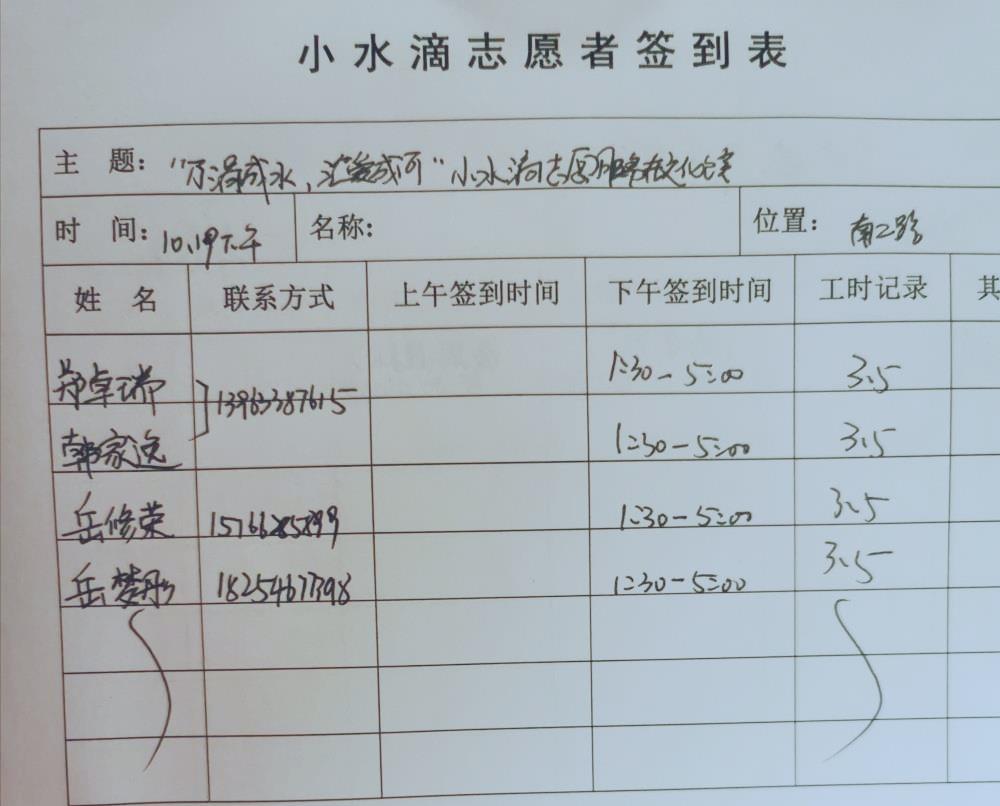 小水滴志愿者签到表
主 题："万滴成水，汇爱成河"小水滴志愿服务在文化宫
时 间：10.19下午 名称： 位置：南二路
姓 名 联系方式 上午签到时间 下午签到时间 工时记录 其
郑卓瑞 13963387615 1:30-5:00 3.5
韩家逸 1:30-5:00 3.5
岳修荣 15766285899 1:30-5:00 3.5
岳梦彤 18254677398 1:30-5:00 3.5